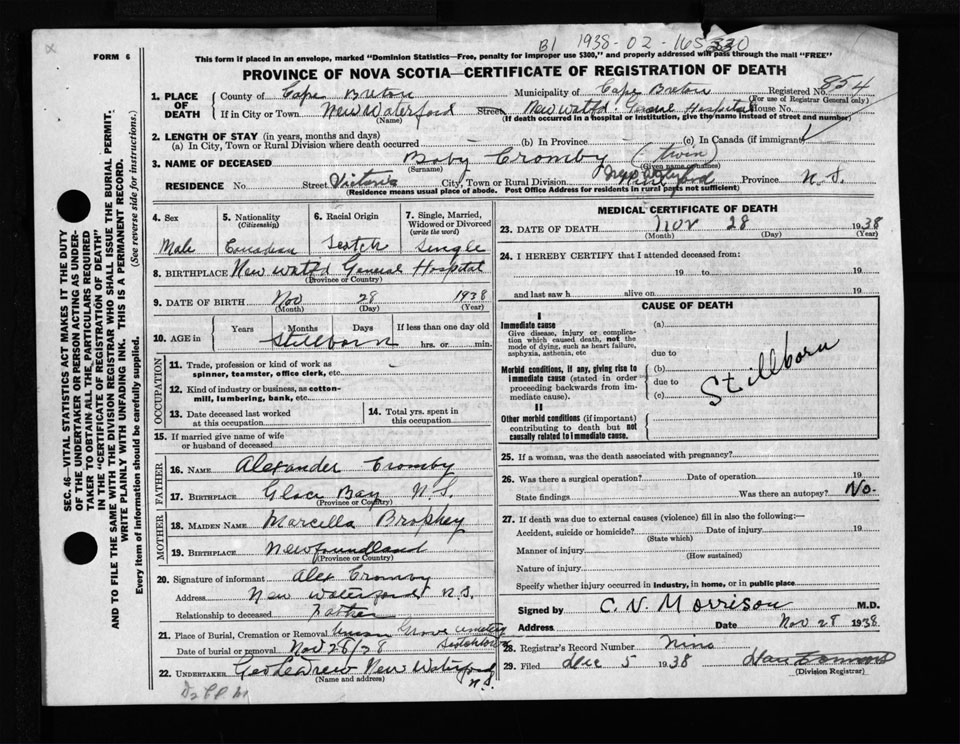 B1 1938-02-165330
FORM 6
This form if placed in an envelope, marked "Dominion Statistics—Free, penalty for improper use $300," and properly addressed will pass through the mail "FREE"
PROVINCE OF NOVA SCOTIA—CERTIFICATE OF REGISTRATION OF DEATH
1. PLACE OF DEATH
County of Cape Breton Municipality of Cape Breton Registered No. 854
(For use of Registrar General only)
If in City or Town New Waterford Street New Wat'fd. General Hospital House No.
(Name) (If death occurred in a hospital or institution, give the name instead of street and number)
2. LENGTH OF STAY (in years, months and days)
(a) In City, Town or Rural Division where death occurred (b) In Province (c) In Canada (if immigrant)
3. NAME OF DECEASED Baby Cromby (twin)
(Surname) (Given name or names)
RESIDENCE No. Street Victoria City, Town or Rural Division New Waterford Province N.S.
(Residence means usual place of abode. Post Office Address for residents in rural parts not sufficient)
4. Sex
Male
5. Nationality (Citizenship)
Canadian
6. Racial Origin
Scotch
7. Single, Married, Widowed or Divorced (write the word)
Single
8. BIRTHPLACE New Wat'fd General Hospital
(Province or Country)
9. DATE OF BIRTH Nov 28 1938
(Month) (Day) (Year)
10. AGE in Years Months Days If less than one day old
Stillborn hrs. or min.
OCCUPATION
11. Trade, profession or kind of work as spinner, teamster, office clerk, etc.
12. Kind of industry or business, as cotton-mill, lumbering, bank, etc.
13. Date deceased last worked at this occupation
14. Total yrs. spent in this occupation
15. If married give name of wife or husband of deceased
FATHER
16. NAME Alexander Cromby
17. BIRTHPLACE Glace Bay N.S.
(Province or Country)
MOTHER
18. MAIDEN NAME Marcella Brophey
19. BIRTHPLACE Newfoundland
(Province or Country)
20. Signature of informant Alex Cromby
Address New Waterford N.S.
Relationship to deceased Father
21. Place of Burial, Cremation or Removal Union Grove Cemetery Scotchtown
Date of burial or removal Nov 28/28
22. UNDERTAKER New Waterford N.S.
(Name and address)
MEDICAL CERTIFICATE OF DEATH
23. DATE OF DEATH Nov 28 1938
(Month) (Day) (Year)
24. I HEREBY CERTIFY that I attended deceased from:
19 to 19
and last saw h alive on 19
CAUSE OF DEATH
I
Immediate cause
Give disease, injury or complication which caused death, not the mode of dying, such as heart failure, asphyxia, asthenia, etc
(a)
due to
Morbid conditions, if any, giving rise to immediate cause (stated in order proceeding backwards from immediate cause).
(b)
due to
(c)
Stillborn
II
Other morbid conditions (if important) contributing to death but not causally related to immediate cause.
25. If a woman, was the death associated with pregnancy?
26. Was there a surgical operation? Date of operation 19
State findings Was there an autopsy? No.
27. If death was due to external causes (violence) fill in also the following:—
Accident, suicide or homicide? Date of injury 19
(State which)
Manner of injury
(How sustained)
Nature of injury
Specify whether injury occurred in industry, in home, or in public place
Signed by C. V. Morrison M.D.
Address Date Nov 28 1938
28. Registrar's Record Number Nine
29. Filed Dec 5 1938
(Division Registrar)
SEC. 46—VITAL STATISTICS ACT MAKES IT THE DUTY
OF THE UNDERTAKER OR PERSON ACTING AS UNDER-
TAKER TO OBTAIN ALL THE PARTICULARS REQUIRED
IN THE "CERTIFICATE OF REGISTRATION OF DEATH"
AND TO FILE THE SAME WITH THE DIVISION REGISTRAR WHO SHALL ISSUE THE BURIAL PERMIT.
WRITE PLAINLY WITH UNFADING INK. THIS IS A PERMANENT RECORD.
Every item of information should be carefully supplied. (See reverse side for instructions.)